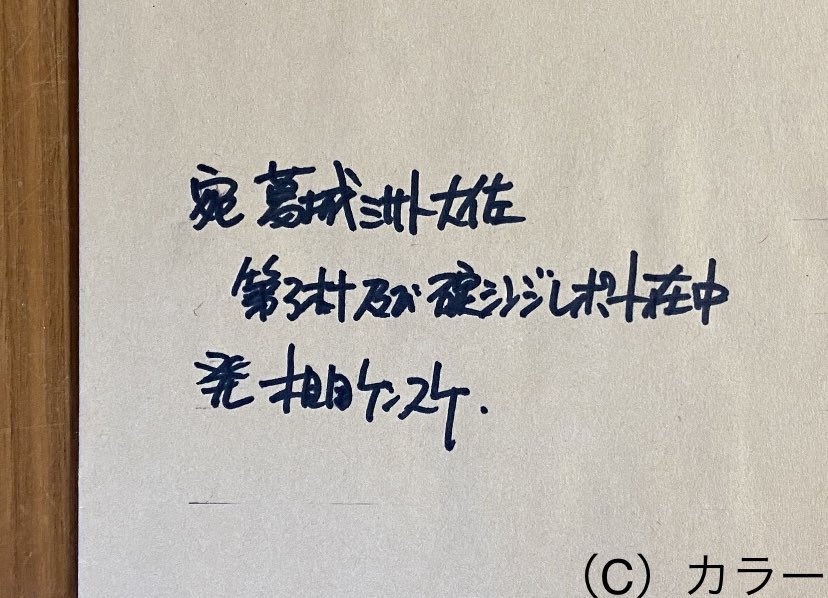 宛 葛城ミサト大佐
第3村及び碇シンジレポート在中
発 相田ケンスケ.
(C) カラー